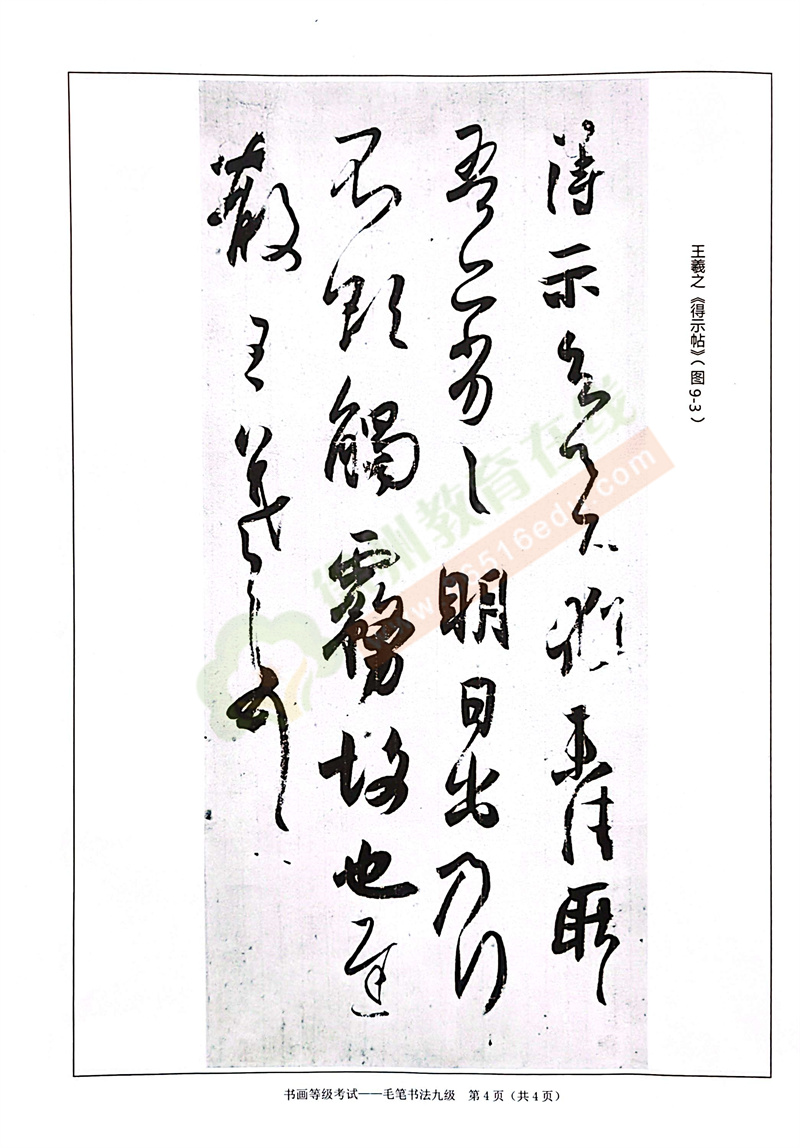 王羲之《得示帖》（图9-3）
得示知足下犹未佳耿
吾亦劣劣明日出乃行
不欲触雾故也迟
散王羲之顿首
徐州教育在线
www.xz516edu.com
书画等级考试——毛笔书法九级 第4页（共4页）